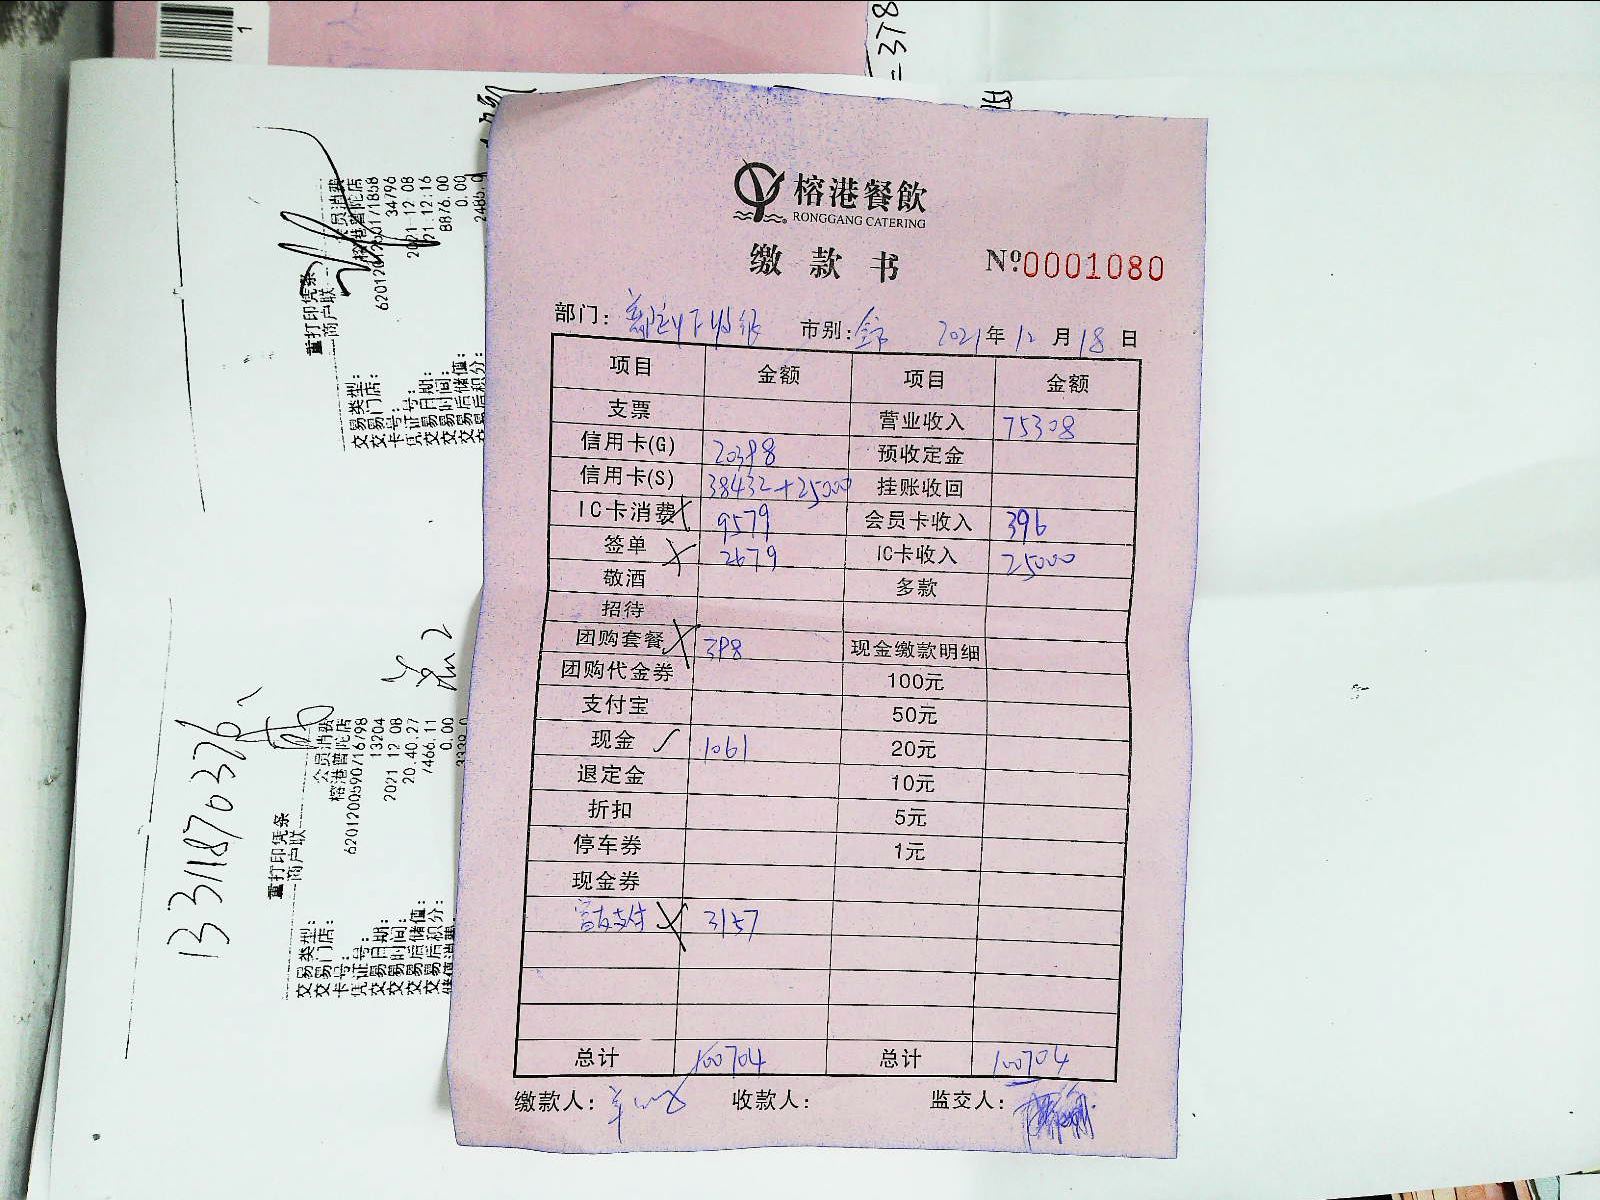 榕港餐飲
RONGGANG CATERING
缴款书 №0001080
部门: 市别: 2021年12月18日
项目 金额 项目 金额
支票 营业收入 75308
信用卡(G) 20398 预收定金
信用卡(S) 38432+25000 挂账收回
IC卡消费 9579 会员卡收入 396
签单 2679 IC卡收入 25000
敬酒 多款
招待
团购套餐 398 现金缴款明细
团购代金券 100元
支付宝 50元
现金 ✓ 1061 20元
退定金 10元
折扣 5元
停车券 1元
现金券
支付 3157
总计 100704 总计 100704
缴款人: 收款人: 监交人:
重打印凭条
商户联
交易类型: 会员消费
交易门店: 榕港普陀店
卡号:
凭证号: 34796
交易日期: 2021 12 08
交易时间: 21.12.16
交易后储值: 8876.00
交易后积分: 0.00
重打印凭条
商户联
交易类型: 会员消费
交易门店: 榕港普陀店
卡号:
凭证号: 13204
交易日期: 2021 12 08
交易时间: 20.40.27
交易后储值: 7466.11
交易后积分: 0.00
储值消费
13311870326
1